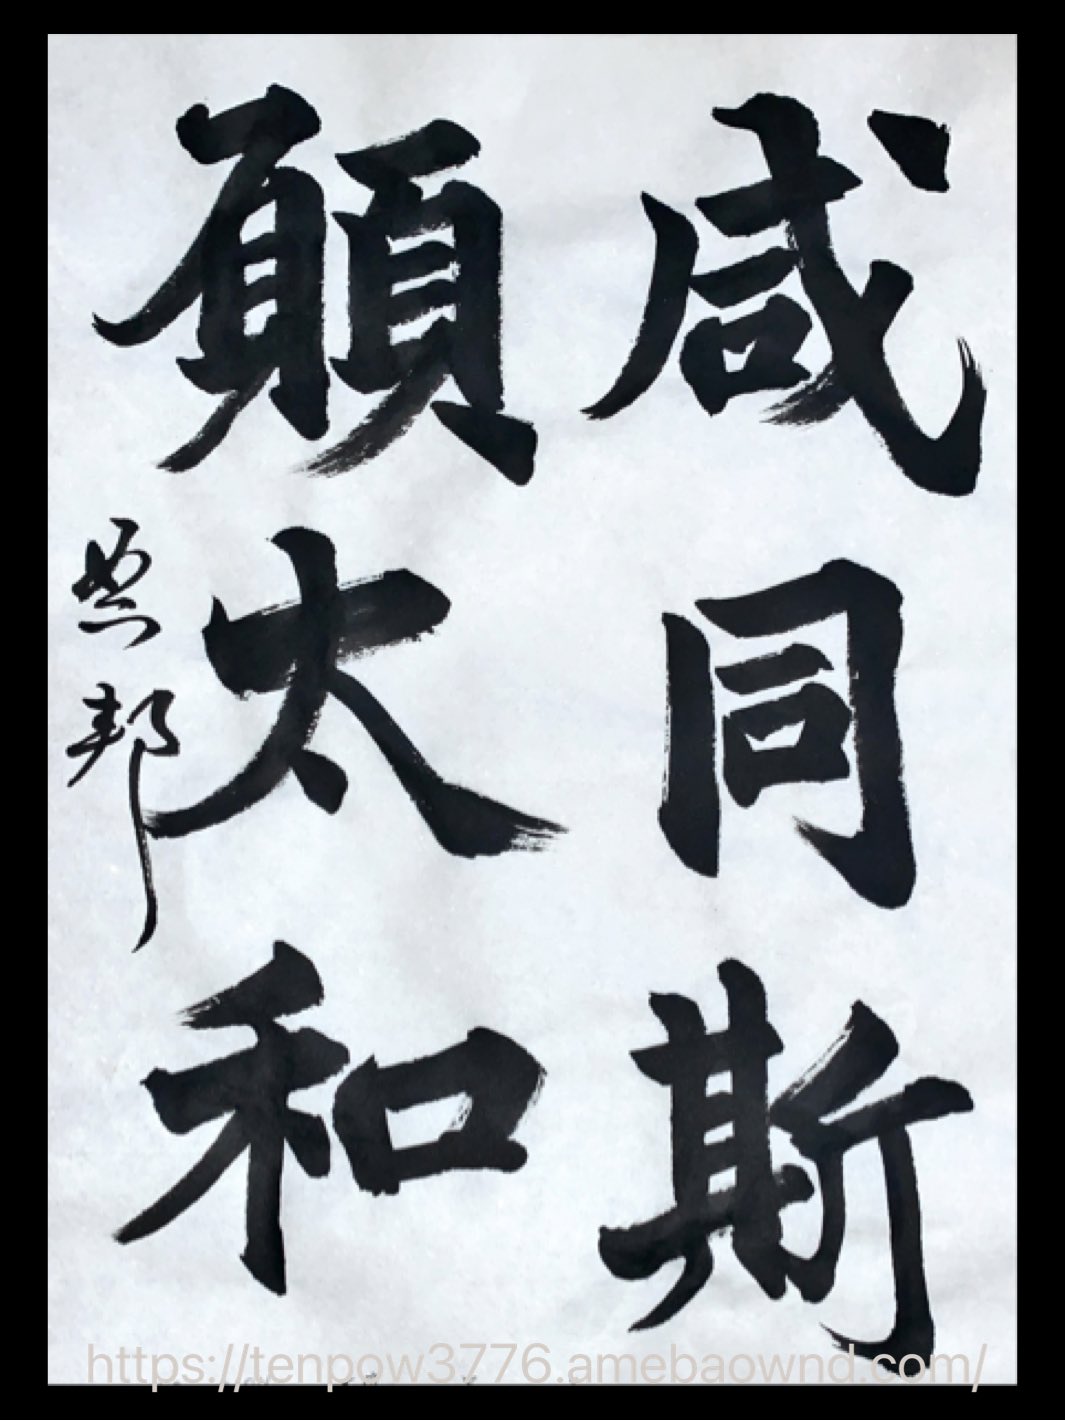 咸同斯
願太和
https://tenpow3776.amebaownd.com/